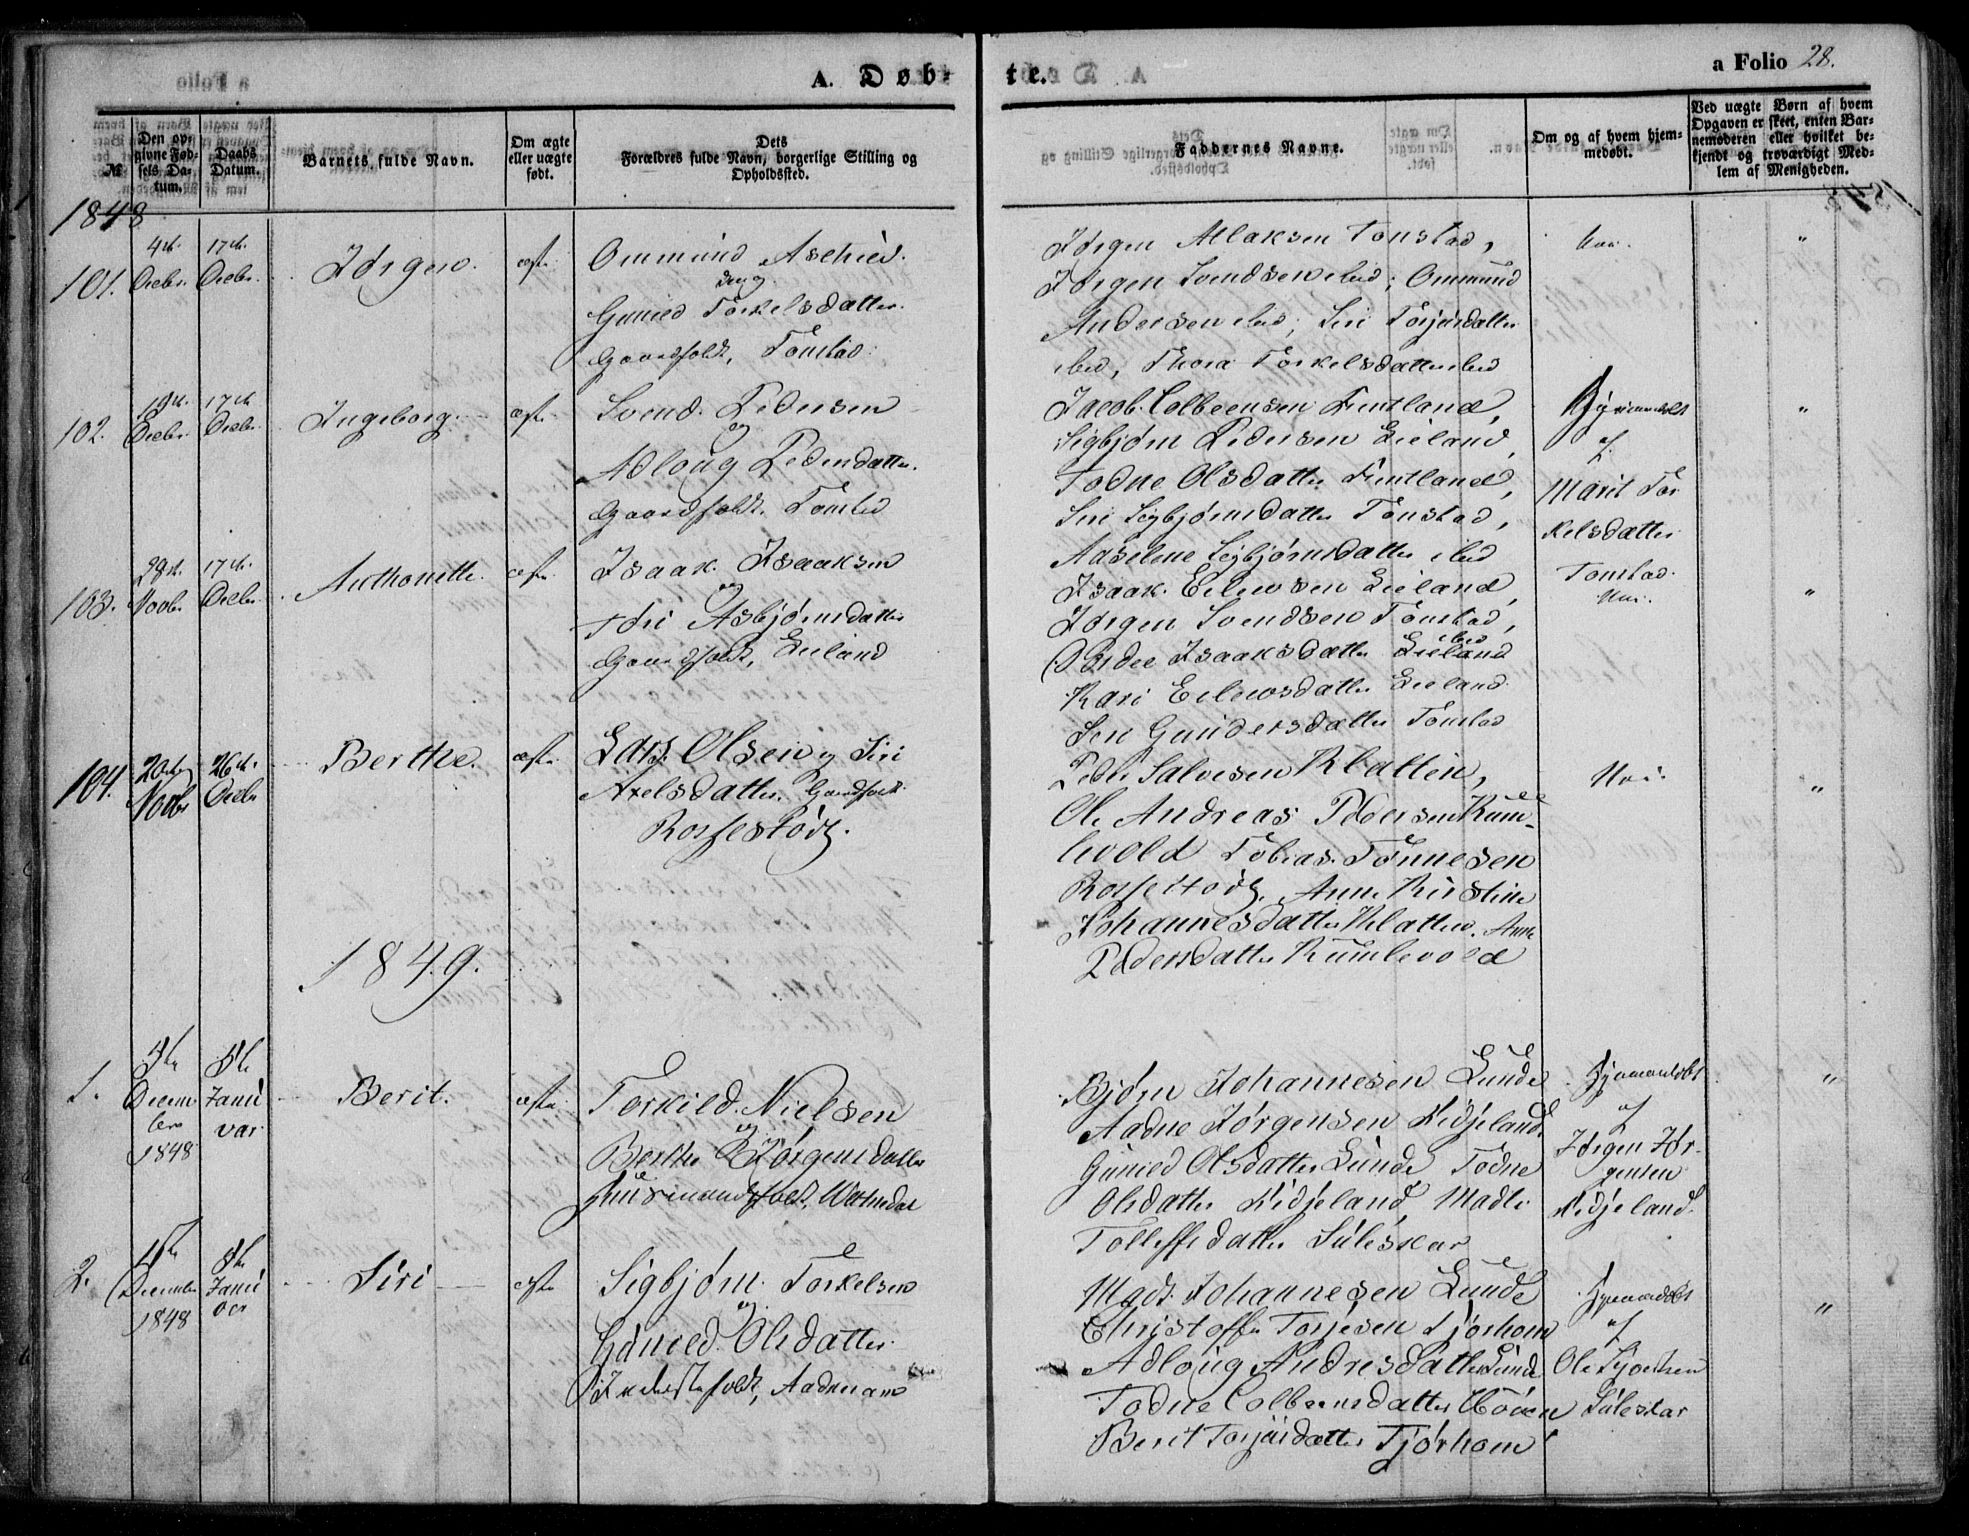 A. Døb-
te.
a Folio 28.
№
Den op-
givne Fød-
sels Da-
tum.
Daabs
Datum.
Barnets fulde Navn.
Om ægte
eller uægte
født.
Dets
Forældres fulde Navn, borgerlige Stilling og
Opholdssted.
Faddernes Navne.
Om og af hvem hjem-
medøbt.
Ved uægte Børn af hvem
Opgaven er skeet, enten Bar-
nemoderen eller hvilket be-
kjendt og troværdigt Med-
lem af Menigheden.
1848
101.
4de
Decbr.
17de
Decbr.
Jørgen.
ægte
Ommund
og
Guried Torkelsdatter.
Gaardfolk, Tonstad.
Jørgen Atlaksen Tonstad,
Jørgen Svendsen ibid; Ommund
Andersen ibid; Siri Torjusdatter
ibid, Thora Torkelsdatter ibid
Nei.
"
102.
Decbr.
17de
Decbr.
Ingeborg.
ægte
Svend Pedersen
og
Adloug Pedersdatter.
Gaardfolk. Tonstad
Jacob Colbeensen Fintland,
Sigbjørn Pedersen Lieland,
Todne Olsdatter Fintland,
Siri Sigbjørnsdatter Tonstad,
Aaselene Sigbjørnsdatter ibid
Hjemmedøbt
af
Marit Tor
kelsdatter
Tonstad.
"
103.
29de
Novbr
17de
Decbr.
Anthonette.
ægte
Isaak Isaaksen
og
Tori Asbjørnsdatter
Gaardfolk, Lieland
Isaak Eilevsen Lieland,
Jørgen Svendsen Tonstad,
Isaaksdatter Lieland
ibid
Kari Eilevsdatter Lieland
Siri Gundersdatter Tonstad
Nei.
"
104.
20de
Novbr
26de
Decbr
Berthe.
ægte
Lars Olsen og Siri
Axelsdatter. Gaardfolk
Rossestød.
Peder Salvesen Klatten,
Ole Andreas Pedersen Kum-
levold Tobias Tønnesen
Rossestød, Anne Kirstine
Johannesdatter Klatten. Anne
Pedersdatter Kumlevold
Nei.
"
1849.
1.
Decem
ber
1848
Janu
var
Berit.
ægte
Torkild Nielsen
og
Berthe Jørgensdatter
Huusmandsfolk, Watnedal
Bjørn Johannesen Lunde
Aadne Jørgensen Kidjeland
Guried Olsdatter Lunde Todne
Olsdatter Kidjeland, Madli
Tolleffsdatter Suleskar
Hjemmedøbt
af
Jørgen Jør-
gensen
Kidjeland.
"
2.
December
1848
Janu
var
Siri
ægte
Sigbjørn Torkelsen
og
Guried Olsdatter
Inderstfolk, Aadneram
Mads Johannesen Lunde
Christoffer Torjesen Tjørhom
Adloug Andresdatter Lunde
Todne Colbeensdatter
Berit Torjusdatter Tjørhom
Hjemmedøbt
af
Ole
Suleskar
"